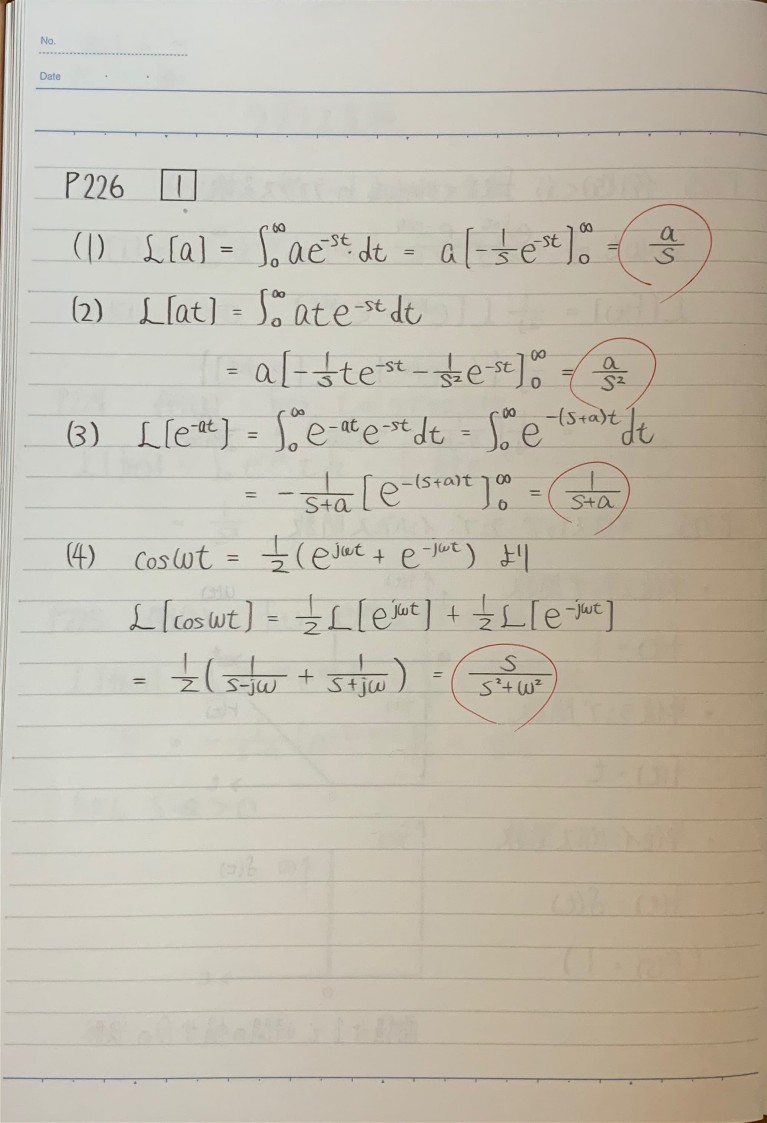 No.
Date
P226 1
(1) ℒ[a] = ∫₀^∞ ae^{-st} dt = a[-1/s e^{-st}]₀^∞ = a/s
(2) ℒ[at] = ∫₀^∞ ate^{-st}dt
= a[-1/s te^{-st} - 1/s² e^{-st}]₀^∞ = a/s²
(3) ℒ[e^{-at}] = ∫₀^∞ e^{-at}e^{-st}dt = ∫₀^∞ e^{-(s+a)t}dt
= -1/(s+a) [e^{-(s+a)t}]₀^∞ = 1/(s+a)
(4) cosωt = 1/2(e^{jωt} + e^{-jωt}) より
ℒ[cosωt] = 1/2 ℒ[e^{jωt}] + 1/2 ℒ[e^{-jωt}]
= 1/2(1/(s-jω) + 1/(s+jω)) = s/(s²+ω²)